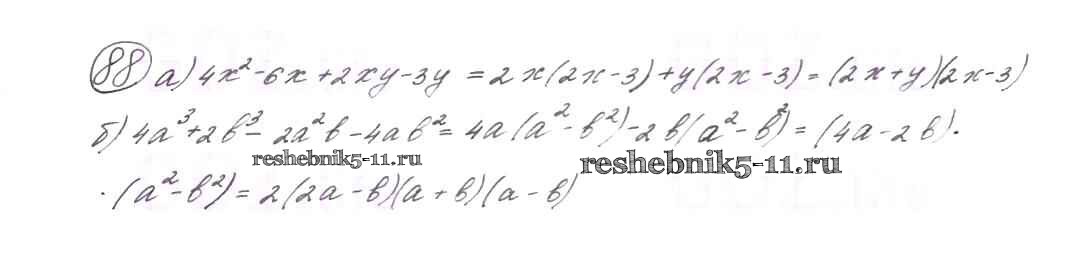 88 а) 4x²-6x+2xy-3y = 2x(2x-3)+y(2x-3) = (2x+y)(2x-3)
б) 4a³+2b³- 2a²b-4ab² = 4a(a²-b²)-2b(a²-b²) = (4a-2b).
reshebnik5-11.ru
reshebnik5-11.ru
·(a²-b²) = 2(2a-b)(a+b)(a-b)